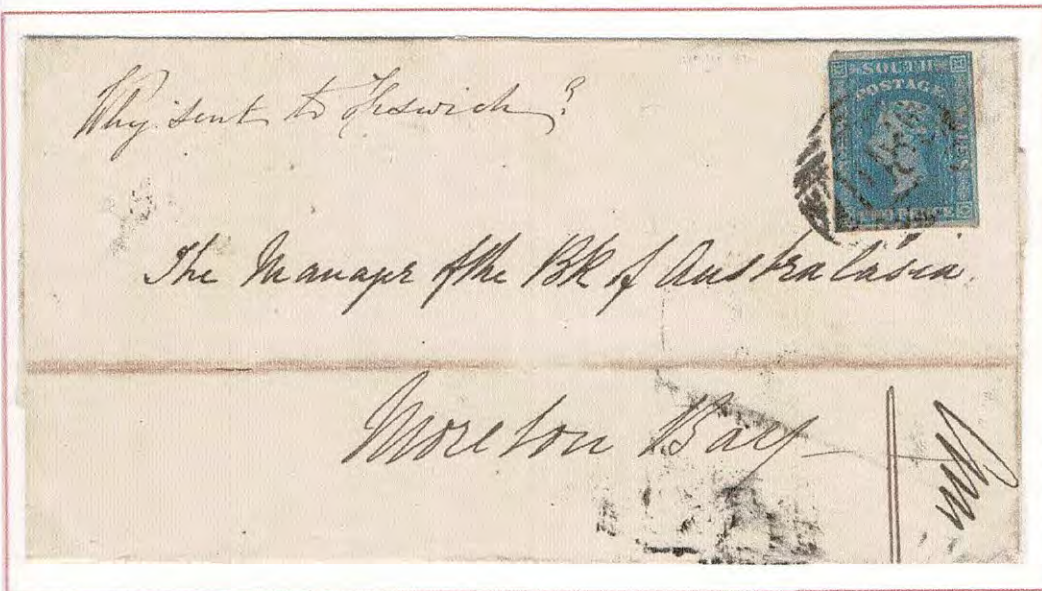 Why sent to Ipswich?
SOUTH
POSTAGE
WALES
TWO PENCE
The Manager of the Bk of Australasia.
Moreton Bay